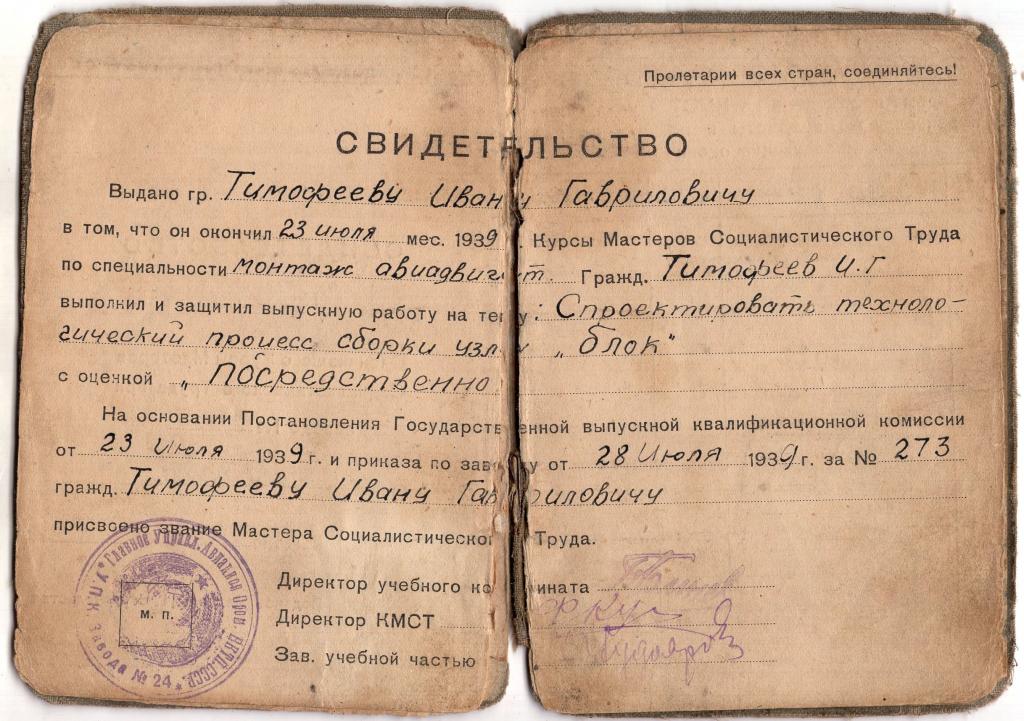 Пролетарии всех стран, соединяйтесь!
СВИДЕТЕЛЬСТВО
Выдано гр. Тимофееву Ивану Гавриловичу
в том, что он окончил 23 июля мес. 1939 г. Курсы Мастеров Социалистического Труда
по специальности монтаж авиадвигат. Гражд. Тимофеев И.Г
выполнил и защитил выпускную работу на тему: Спроектировать техноло-
гический процесс сборки узла „блок"
с оценкой „Посредственно
На основании Постановления Государственной выпускной квалификационной комиссии
от 23 Июля 1939 г. и приказа по заводу от 28 Июля 1939 г. за № 273
гражд. Тимофееву Ивану Гавриловичу
присвоено звание Мастера Социалистического Труда.
Директор учебного комбината
Директор КМСТ
Зав. учебной частью
м. п.
Главное Управл. Авиацион Пром. НКТП.СССР
Завода № 24